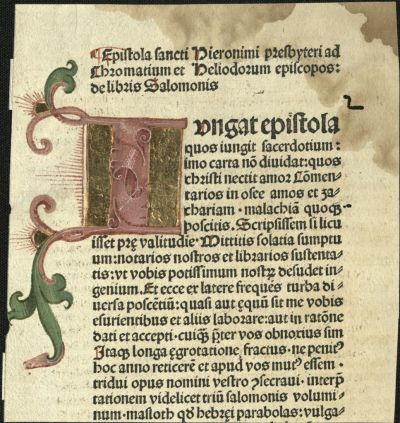 Epistola sancti Hieronimi presbyteri ad
Chromatium et Heliodorum episcopos:
de libris Salomonis
2
Iungat epistola
quos iungit sacerdotium:
imo carta nõ diuidat: quos
christi nectit amor Cõmen-
tarios in osee amos et za-
chariam· malachiã quoqꝫ
poscitis. Scripsissem si licu
isset prę valitudie· Mittitis solatia sumptu
um: notarios nostros et librarios sustenta-
tis: vt vobis potissimum nostꝝ desudet in-
genium. Et ecce er latere frequẽs turba di-
uersa poscẽtiũ: quasi aut ęquũ sit me vobis
esurientibus et aliis laborare: aut in ratõne
dati et accepti· cuiqꝫ p̃ter vos obnoxius sim
Itaqꝫ longa ęgrotatione fractus· ne penitꝰ
hoc anno reticerẽ et apud vos mutꝰ essem·
tridui opus nomini vestro ꝯsecraui· interp̃
tationem videlicet triũ salomonis volumi-
num· masloth qđ hebręi parabolas: vulga-